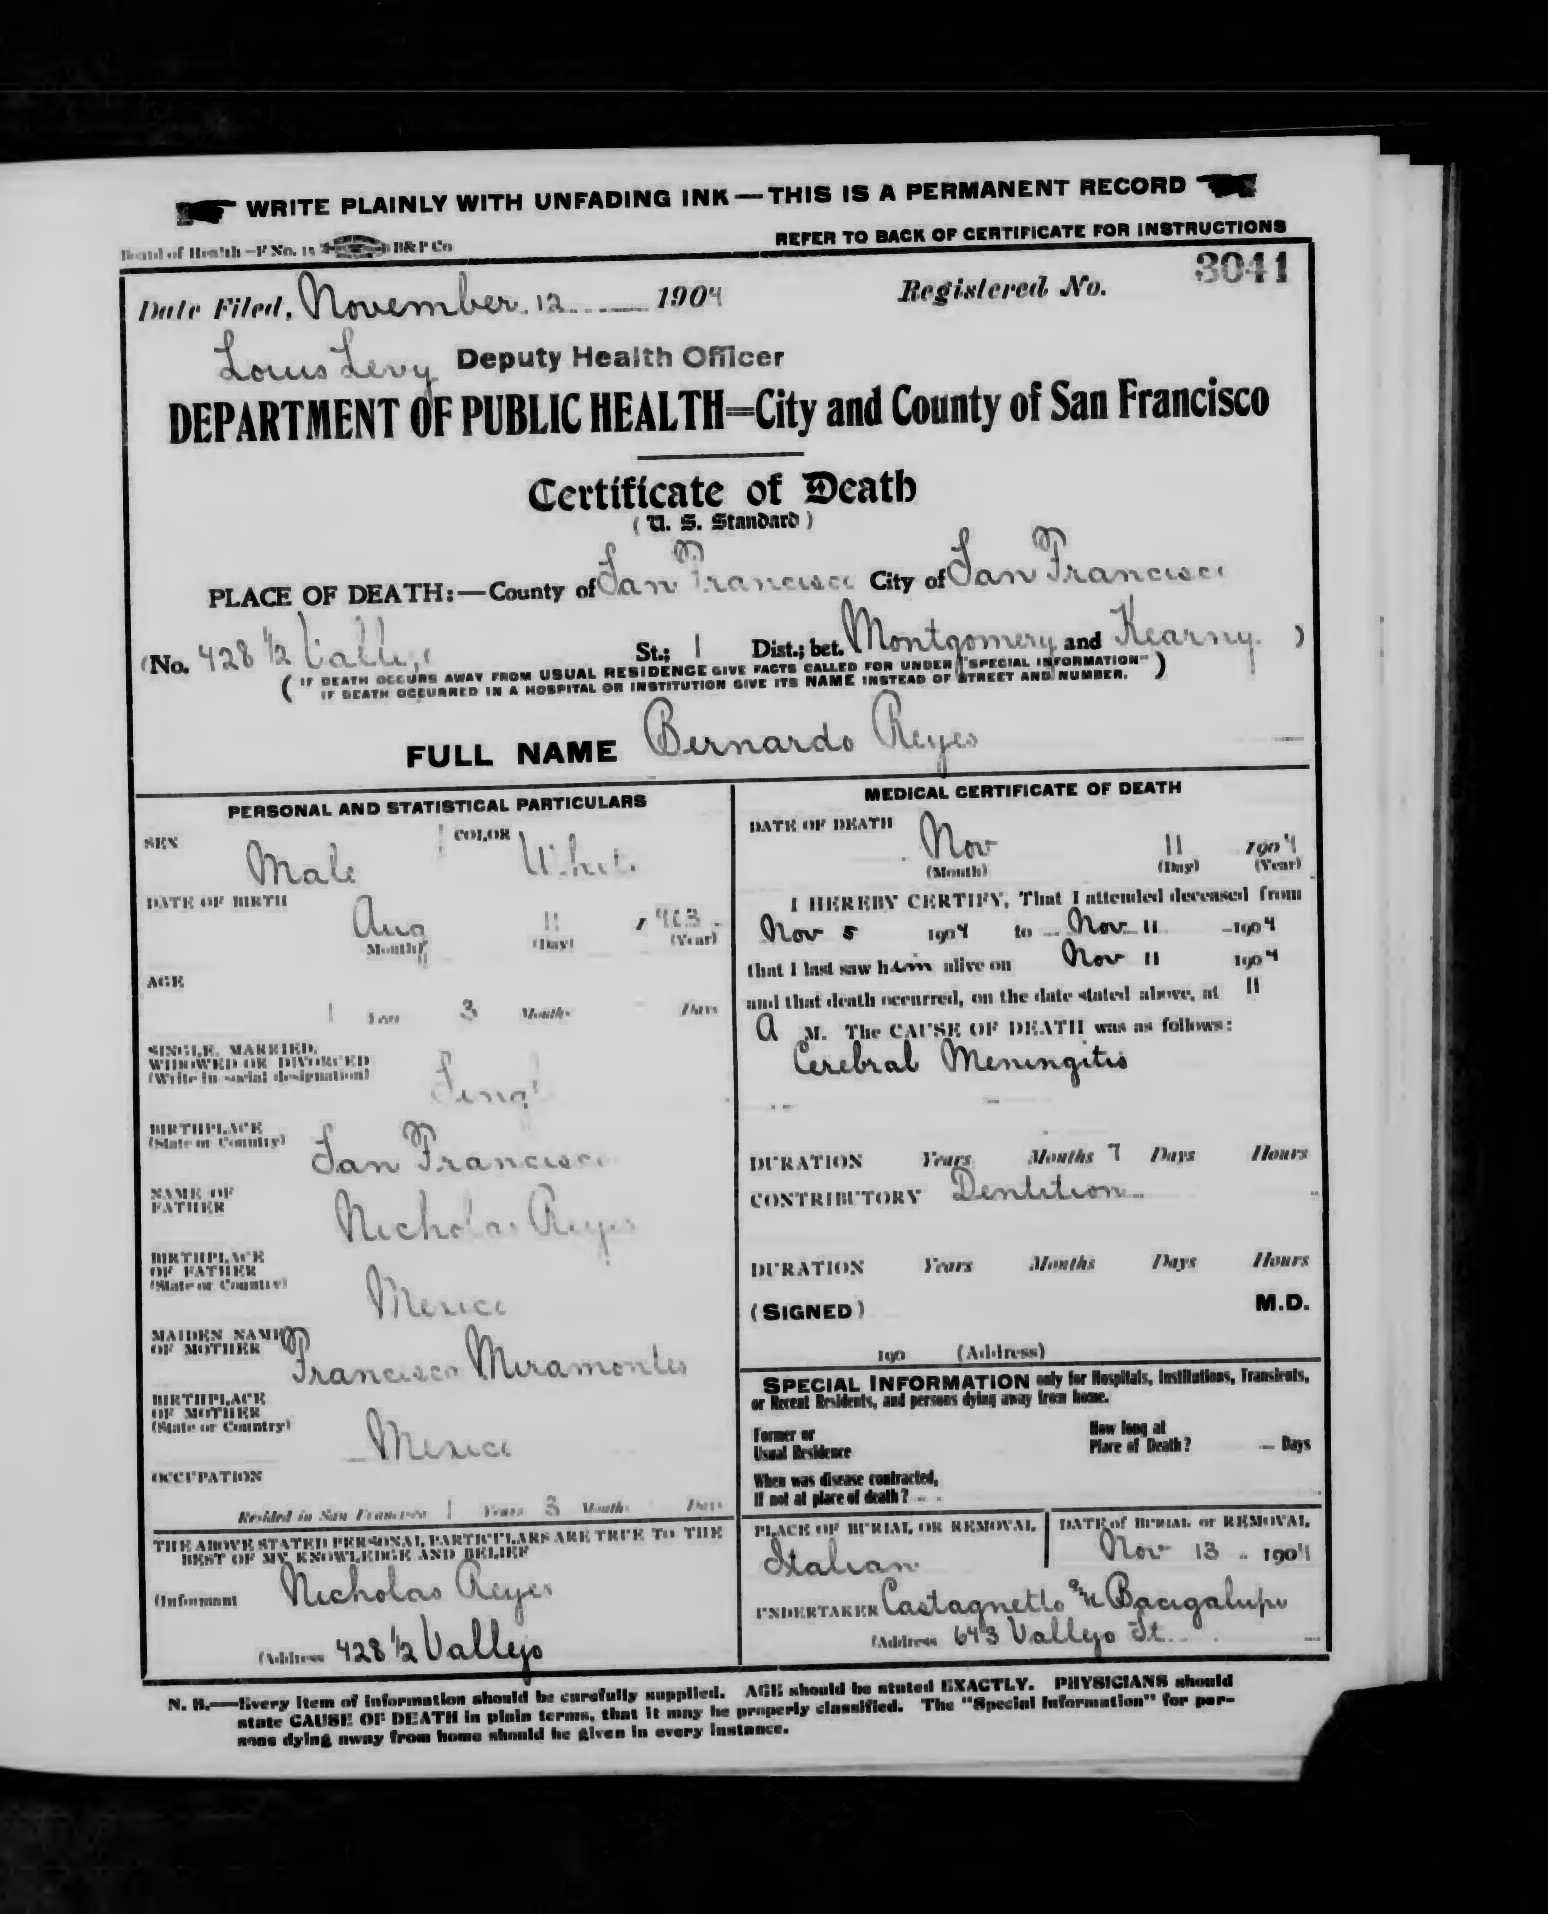 WRITE PLAINLY WITH UNFADING INK—THIS IS A PERMANENT RECORD
Board of Health—F No. 15 B&P Co
REFER TO BACK OF CERTIFICATE FOR INSTRUCTIONS
Date Filed, November 12 1904 Registered No. 3041
Louis Levy Deputy Health Officer
DEPARTMENT OF PUBLIC HEALTH=City and County of San Francisco
Certificate of Death
( U. S. Standard )
PLACE OF DEATH:—County of San Francisco City of San Francisco
(No. 428 1/2 Vallejo St.; 1 Dist.; bet. Montgomery and Kearny )
( IF DEATH OCCURS AWAY FROM USUAL RESIDENCE GIVE FACTS CALLED FOR UNDER "SPECIAL INFORMATION"
IF DEATH OCCURRED IN A HOSPITAL OR INSTITUTION GIVE ITS NAME INSTEAD OF STREET AND NUMBER. )
FULL NAME Bernardo Reyes
PERSONAL AND STATISTICAL PARTICULARS
SEX Male COLOR White
DATE OF BIRTH
Aug 11 1903
(Month) (Day) (Year)
AGE
1 Year 3 Months Days
SINGLE, MARRIED,
WIDOWED OR DIVORCED
(Write in social designation) Single
BIRTHPLACE
(State or Country) San Francisco
NAME OF
FATHER Nicholas Reyes
BIRTHPLACE
OF FATHER
(State or Country) Mexico
MAIDEN NAME
OF MOTHER Francisco Miramontes
BIRTHPLACE
OF MOTHER
(State or Country) Mexico
OCCUPATION
Resided in San Francisco 1 Years 3 Months Days
THE ABOVE STATED PERSONAL PARTICULARS ARE TRUE TO THE
BEST OF MY KNOWLEDGE AND BELIEF
(Informant Nicholas Reyes
(Address 428 1/2 Vallejo
MEDICAL CERTIFICATE OF DEATH
DATE OF DEATH
Nov 11 1904
(Month) (Day) (Year)
I HEREBY CERTIFY, That I attended deceased from
Nov 5 1904 to Nov 11 1904
that I last saw him alive on Nov 11 1904
and that death occurred, on the date stated above, at 11
A M. The CAUSE OF DEATH was as follows:
Cerebral Meningitis
DURATION Years Months 7 Days Hours
CONTRIBUTORY Dentition
DURATION Years Months Days Hours
(SIGNED) M.D.
190 (Address)
SPECIAL INFORMATION only for Hospitals, Institutions, Transients,
or Recent Residents, and persons dying away from home.
Former or
Usual Residence
How long at
Place of Death? Days
When was disease contracted,
If not at place of death?
PLACE OF BURIAL OR REMOVAL
Italian
DATE of BURIAL or REMOVAL
Nov 13 1904
UNDERTAKER Castagnetto & Bacigalupi
(Address 643 Vallejo St.
N. B.—Every item of information should be carefully supplied. AGE should be stated EXACTLY. PHYSICIANS should
state CAUSE OF DEATH in plain terms, that it may be properly classified. The "Special Information" for per-
sons dying away from home should be given in every instance.